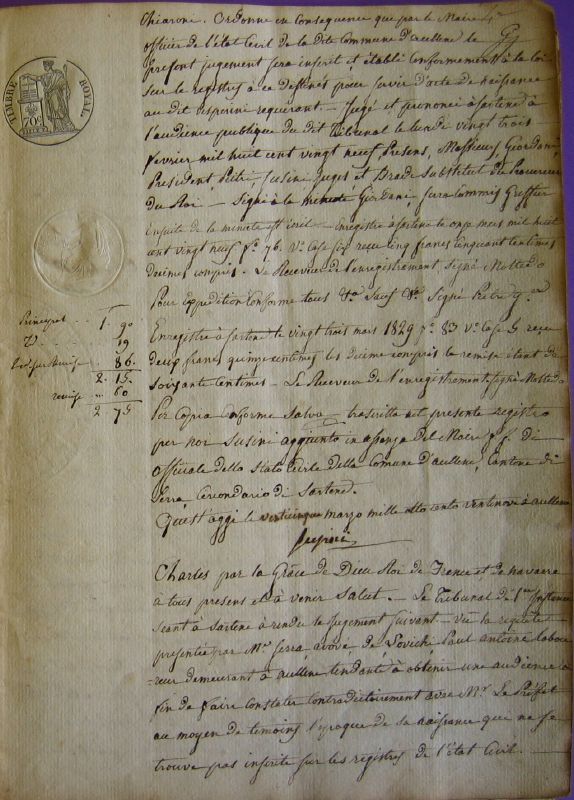 TIMBRE ROYAL
70c
Chiarone. Ordonne en consequence que par le Maire
officier de l'état Civil de la dite Commune d'aullene le
present jugement sera inscrit et établi conformement à la loi
sur les registres à ce destinés pour servir d'acte de naissance
au dit requerant – Jugé et prononcé à Sartene à
l'audience publique du dit Tribunal le lundi vingt trois
fevrier mil huit cent vingt neuf Presens, Messieurs Giordani
President, Pietri, Susini Juges et Substitut du Procureur
du Roi – Signé à la minute Giordani Commis Greffier
Ensuite de la minute est écrit – Enregistré à Sartene le onze mars mil huit
cent vingt neuf fo 76. Vo Case six reçu cinq francs cinquant centimes
decime compris. – Le Receveur de l'enregistrement signé Mottedo
Pour Expedition Conforme Signé Pietri
Principal 1. 90
19
86.
2. 15
remise 60
2 75
Enregistré à Sartene le vingt trois mars 1829 fo 83 Vo Case 5 reçu
deux francs quinze centimes le decime compris la remise étant de
soixante centimes – Le Receveur de l'enregistrement signé Mottedo
Per Copia Conforme Salvo trascritta nel presente registro
per noi Susini aggiunto in assenza del Maire f. f. di
officiale dello Stato Civile della Comune d'aullene, Cantone di
Serra Circondario di Sartene.
Quest'oggi li venticinque marzo mille otto cento ventinove à aullene
Susini
Charles par la Grâce de Dieu Roi de France et de navarre
à tous presens et à venir Salut. – Le Tribunal de 1ere Instance
seant à Sartene à rendu le Jugement suivant – Vu la requête
presentée par Mr Serra avoué de Paul antoine labou-
reur demeurant à aullene tendante à obtenir une audience à
fin de faire constater contradictoirement avec Mr Le Préfet
au moyen de temoins l'epoque de sa naissance que ne se
trouve pas inscrite sur les registres de l'état Civil.